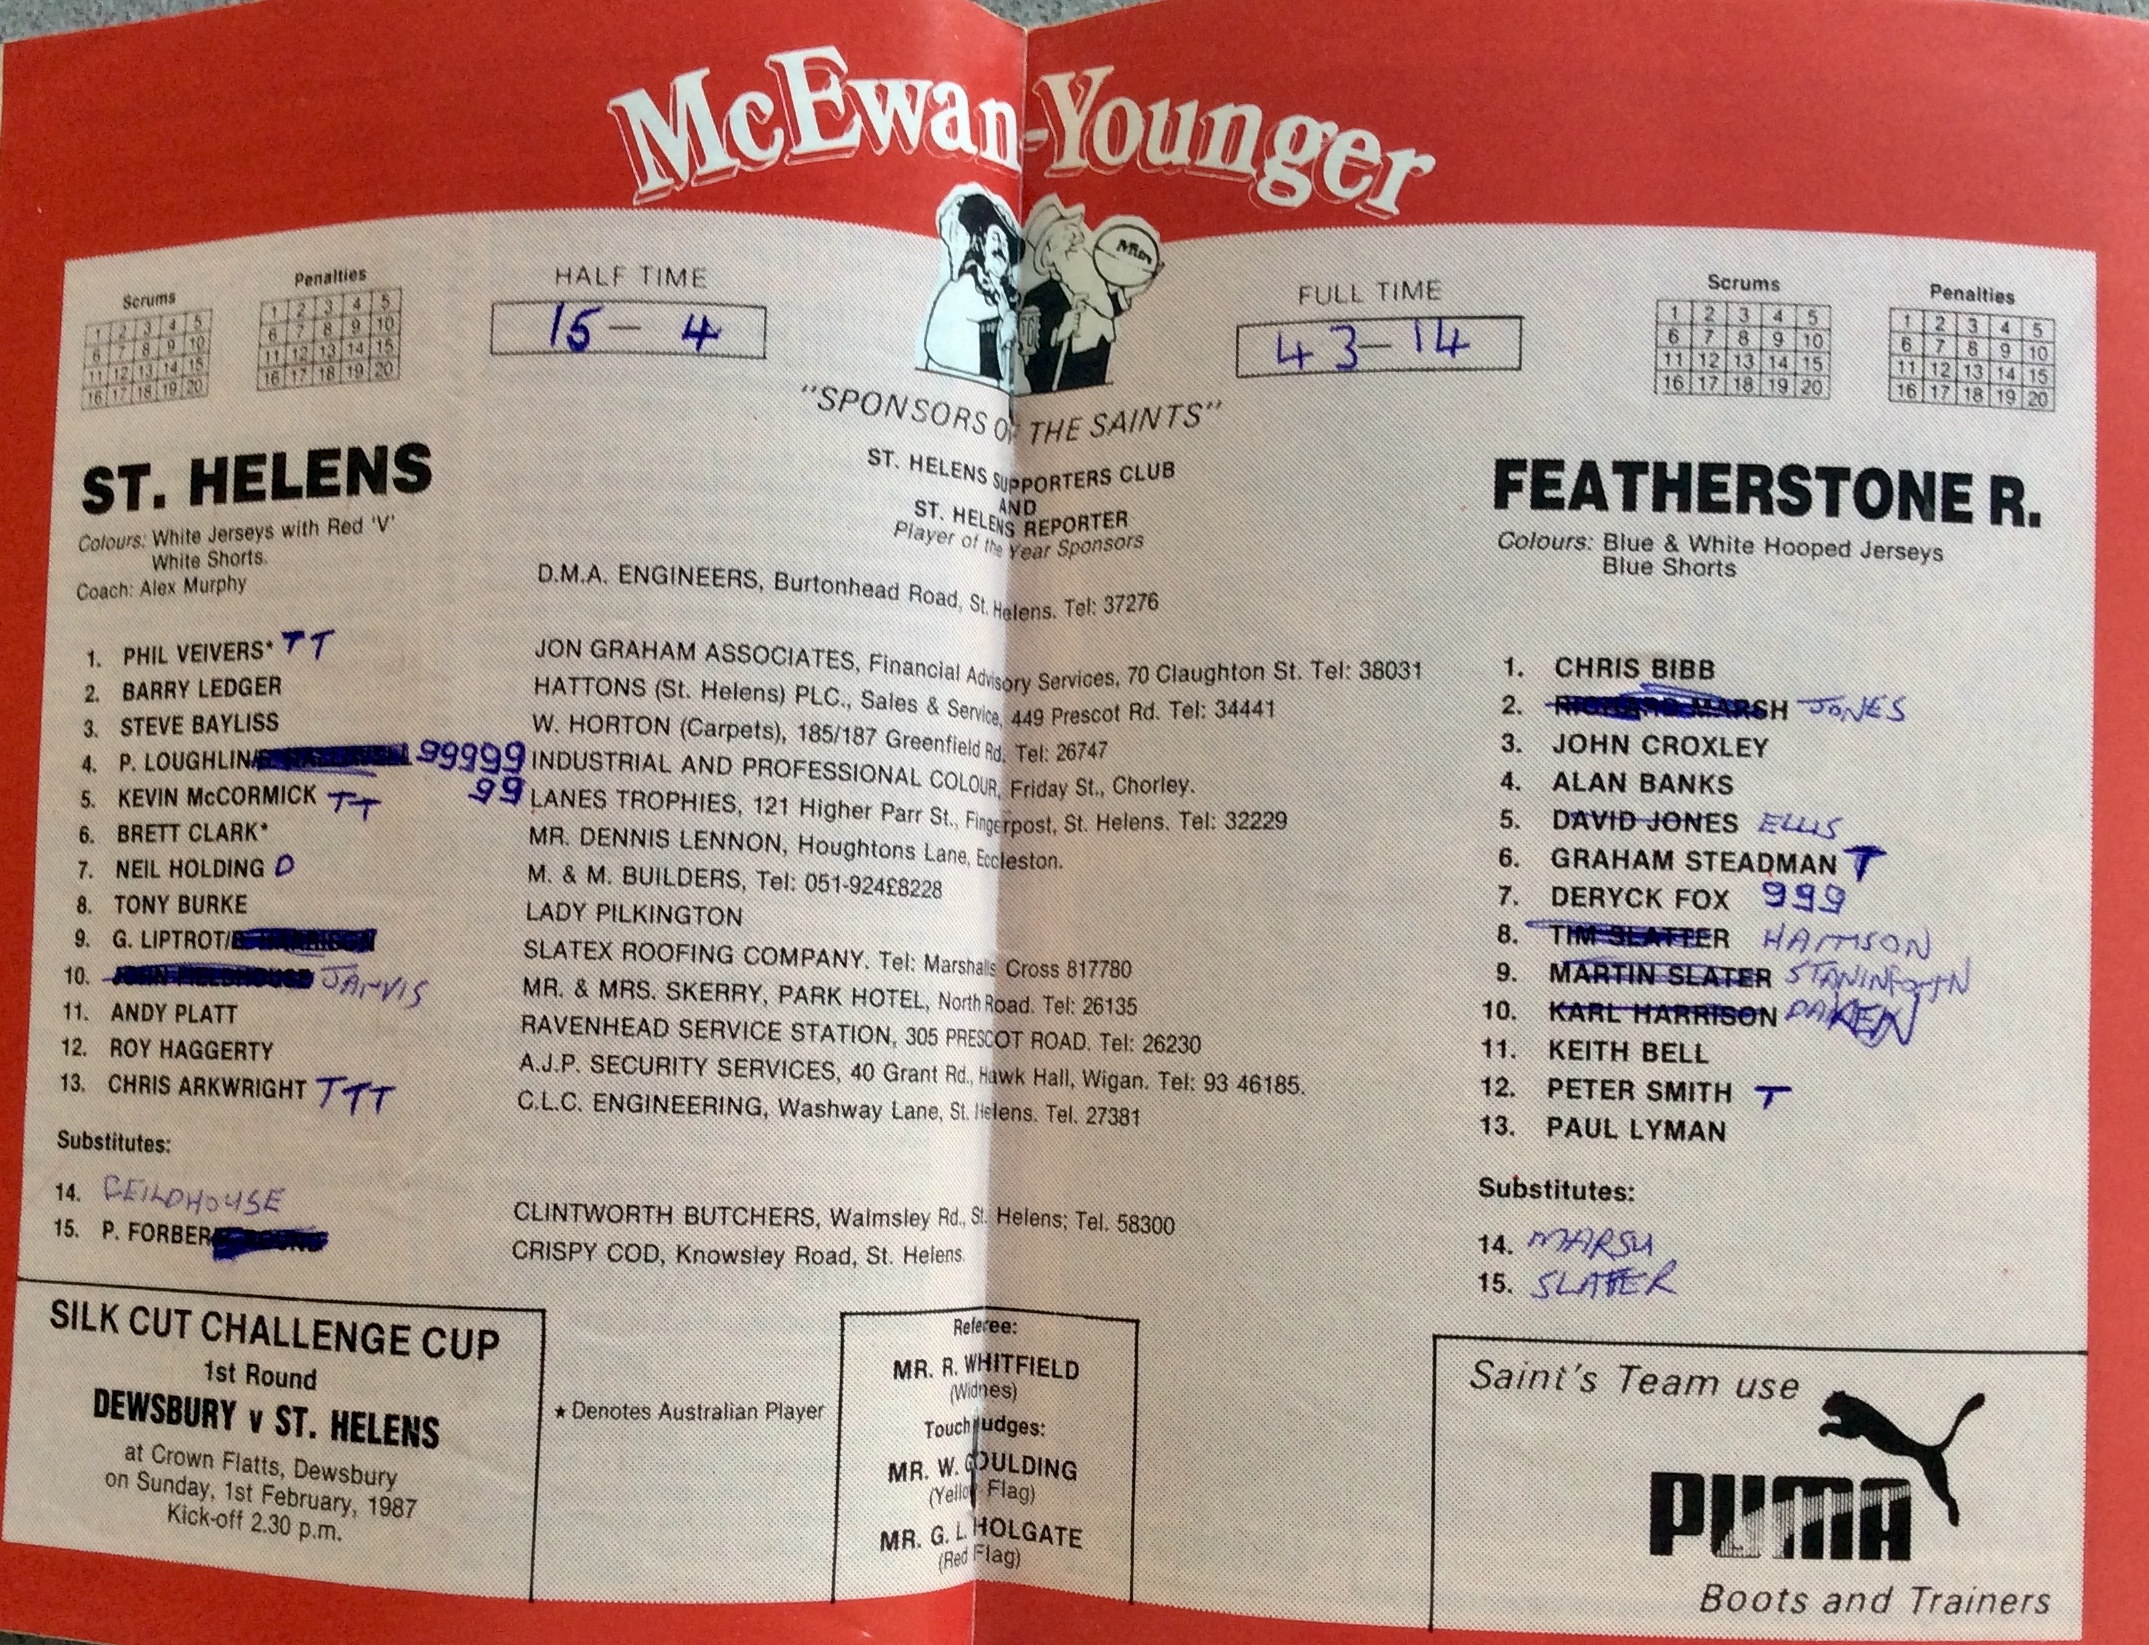 McEwan-Younger
Mitre
Scrums
1 2 3 4 5
6 7 8 9 10
11 12 13 14 15
16 17 18 19 20
Penalties
1 2 3 4 5
6 7 8 9 10
11 12 13 14 15
16 17 18 19 20
HALF TIME
15 - 4
FULL TIME
43-14
Scrums
1 2 3 4 5
6 7 8 9 10
11 12 13 14 15
16 17 18 19 20
Penalties
1 2 3 4 5
6 7 8 9 10
11 12 13 14 15
16 17 18 19 20
"SPONSORS OF THE SAINTS"
ST. HELENS SUPPORTERS CLUB
AND
ST. HELENS REPORTER
Player of the Year Sponsors
ST. HELENS
Colours: White Jerseys with Red 'V'
White Shorts.
Coach: Alex Murphy
1. PHIL VEIVERS* TT
2. BARRY LEDGER
3. STEVE BAYLISS
4. P. LOUGHLIN/ 99999
5. KEVIN McCORMICK TT 99
6. BRETT CLARK*
7. NEIL HOLDING D
8. TONY BURKE
9. G. LIPTROT/
10. JOHN FIELDHOUSE JARVIS
11. ANDY PLATT
12. ROY HAGGERTY
13. CHRIS ARKWRIGHT TTT
Substitutes:
14. FEILDHOUSE
15. P. FORBER
D.M.A. ENGINEERS, Burtonhead Road, St. Helens. Tel: 37276
JON GRAHAM ASSOCIATES, Financial Advisory Services, 70 Claughton St. Tel: 38031
HATTONS (St. Helens) PLC., Sales & Service, 449 Prescot Rd. Tel: 34441
W. HORTON (Carpets), 185/187 Greenfield Rd. Tel: 26747
INDUSTRIAL AND PROFESSIONAL COLOUR, Friday St., Chorley.
LANES TROPHIES, 121 Higher Parr St., Fingerpost, St. Helens. Tel: 32229
MR. DENNIS LENNON, Houghtons Lane, Eccleston.
M. & M. BUILDERS, Tel: 051-924£8228
LADY PILKINGTON
SLATEX ROOFING COMPANY. Tel: Marshalls Cross 817780
MR. & MRS. SKERRY, PARK HOTEL, North Road. Tel: 26135
RAVENHEAD SERVICE STATION, 305 PRESCOT ROAD. Tel: 26230
A.J.P. SECURITY SERVICES, 40 Grant Rd., Hawk Hall, Wigan. Tel: 93 46185.
C.L.C. ENGINEERING, Washway Lane, St. Helens. Tel. 27381
CLINTWORTH BUTCHERS, Walmsley Rd., St. Helens; Tel. 58300
CRISPY COD, Knowsley Road, St. Helens.
FEATHERSTONE R.
Colours: Blue & White Hooped Jerseys
Blue Shorts
1. CHRIS BIBB
2. RICHARD MARSH JONES
3. JOHN CROXLEY
4. ALAN BANKS
5. DAVID JONES ELLIS
6. GRAHAM STEADMAN T
7. DERYCK FOX 999
8. TIM SLATTER HARRISON
9. MARTIN SLATER
10. KARL HARRISON
11. KEITH BELL
12. PETER SMITH T
13. PAUL LYMAN
Substitutes:
14. MARSH
15. SLATER
SILK CUT CHALLENGE CUP
1st Round
DEWSBURY v ST. HELENS
at Crown Flatts, Dewsbury
on Sunday, 1st February, 1987
Kick-off 2.30 p.m.
★ Denotes Australian Player
Referee:
MR. R. WHITFIELD
(Widnes)
Touch Judges:
MR. W. GOULDING
(Yellow Flag)
MR. G. L. HOLGATE
(Red Flag)
Saint's Team use
PUMA
Boots and Trainers